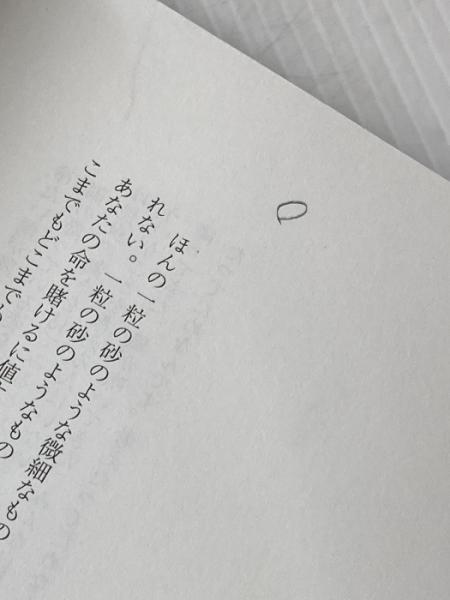 ほんの一粒の砂のような微細なもの
れない。一粒の砂のようなもの
あなたの命を賭けるに値
こまでもどこまでも